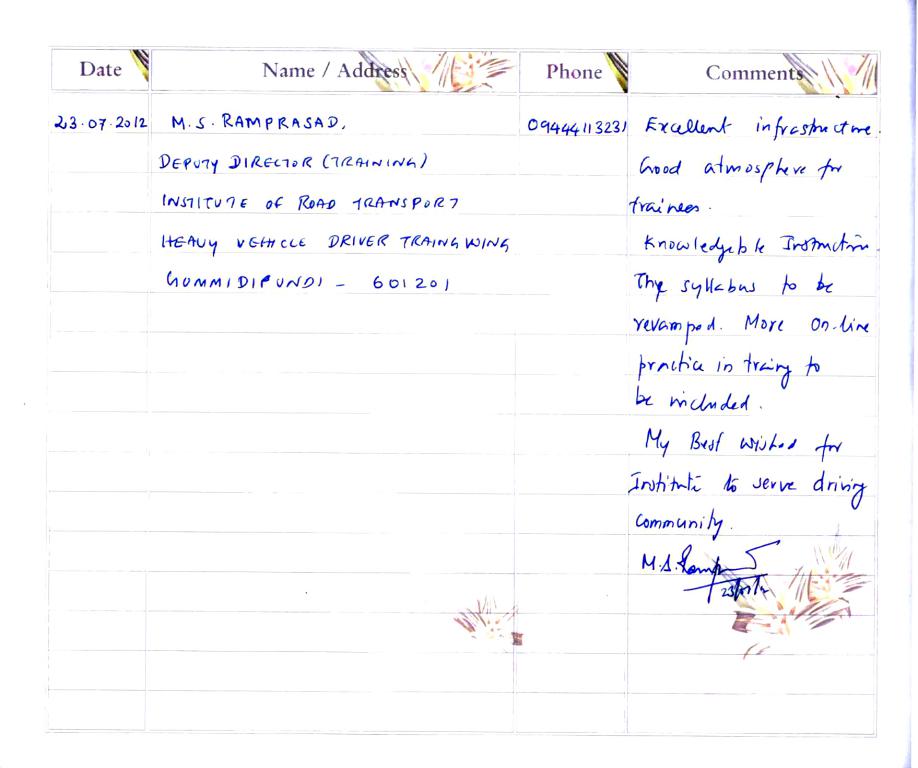 Date Name / Address Phone Comments
23.07.2012 M.S. RAMPRASAD, 09444113231 Excellent infrastructure.
DEPUTY DIRECTOR (TRAINING) Good atmosphere for
INSTITUTE OF ROAD TRANSPORT trainees.
HEAVY VEHICLE DRIVER TRAING WING Knowledgeble Instruction.
GUMMIDIPUNDI - 601201 The syllabus to be
revamped. More on-line
practice in traing to
be included.
My Best wished for
Institute to serve driving
community.
M.S. Ramp